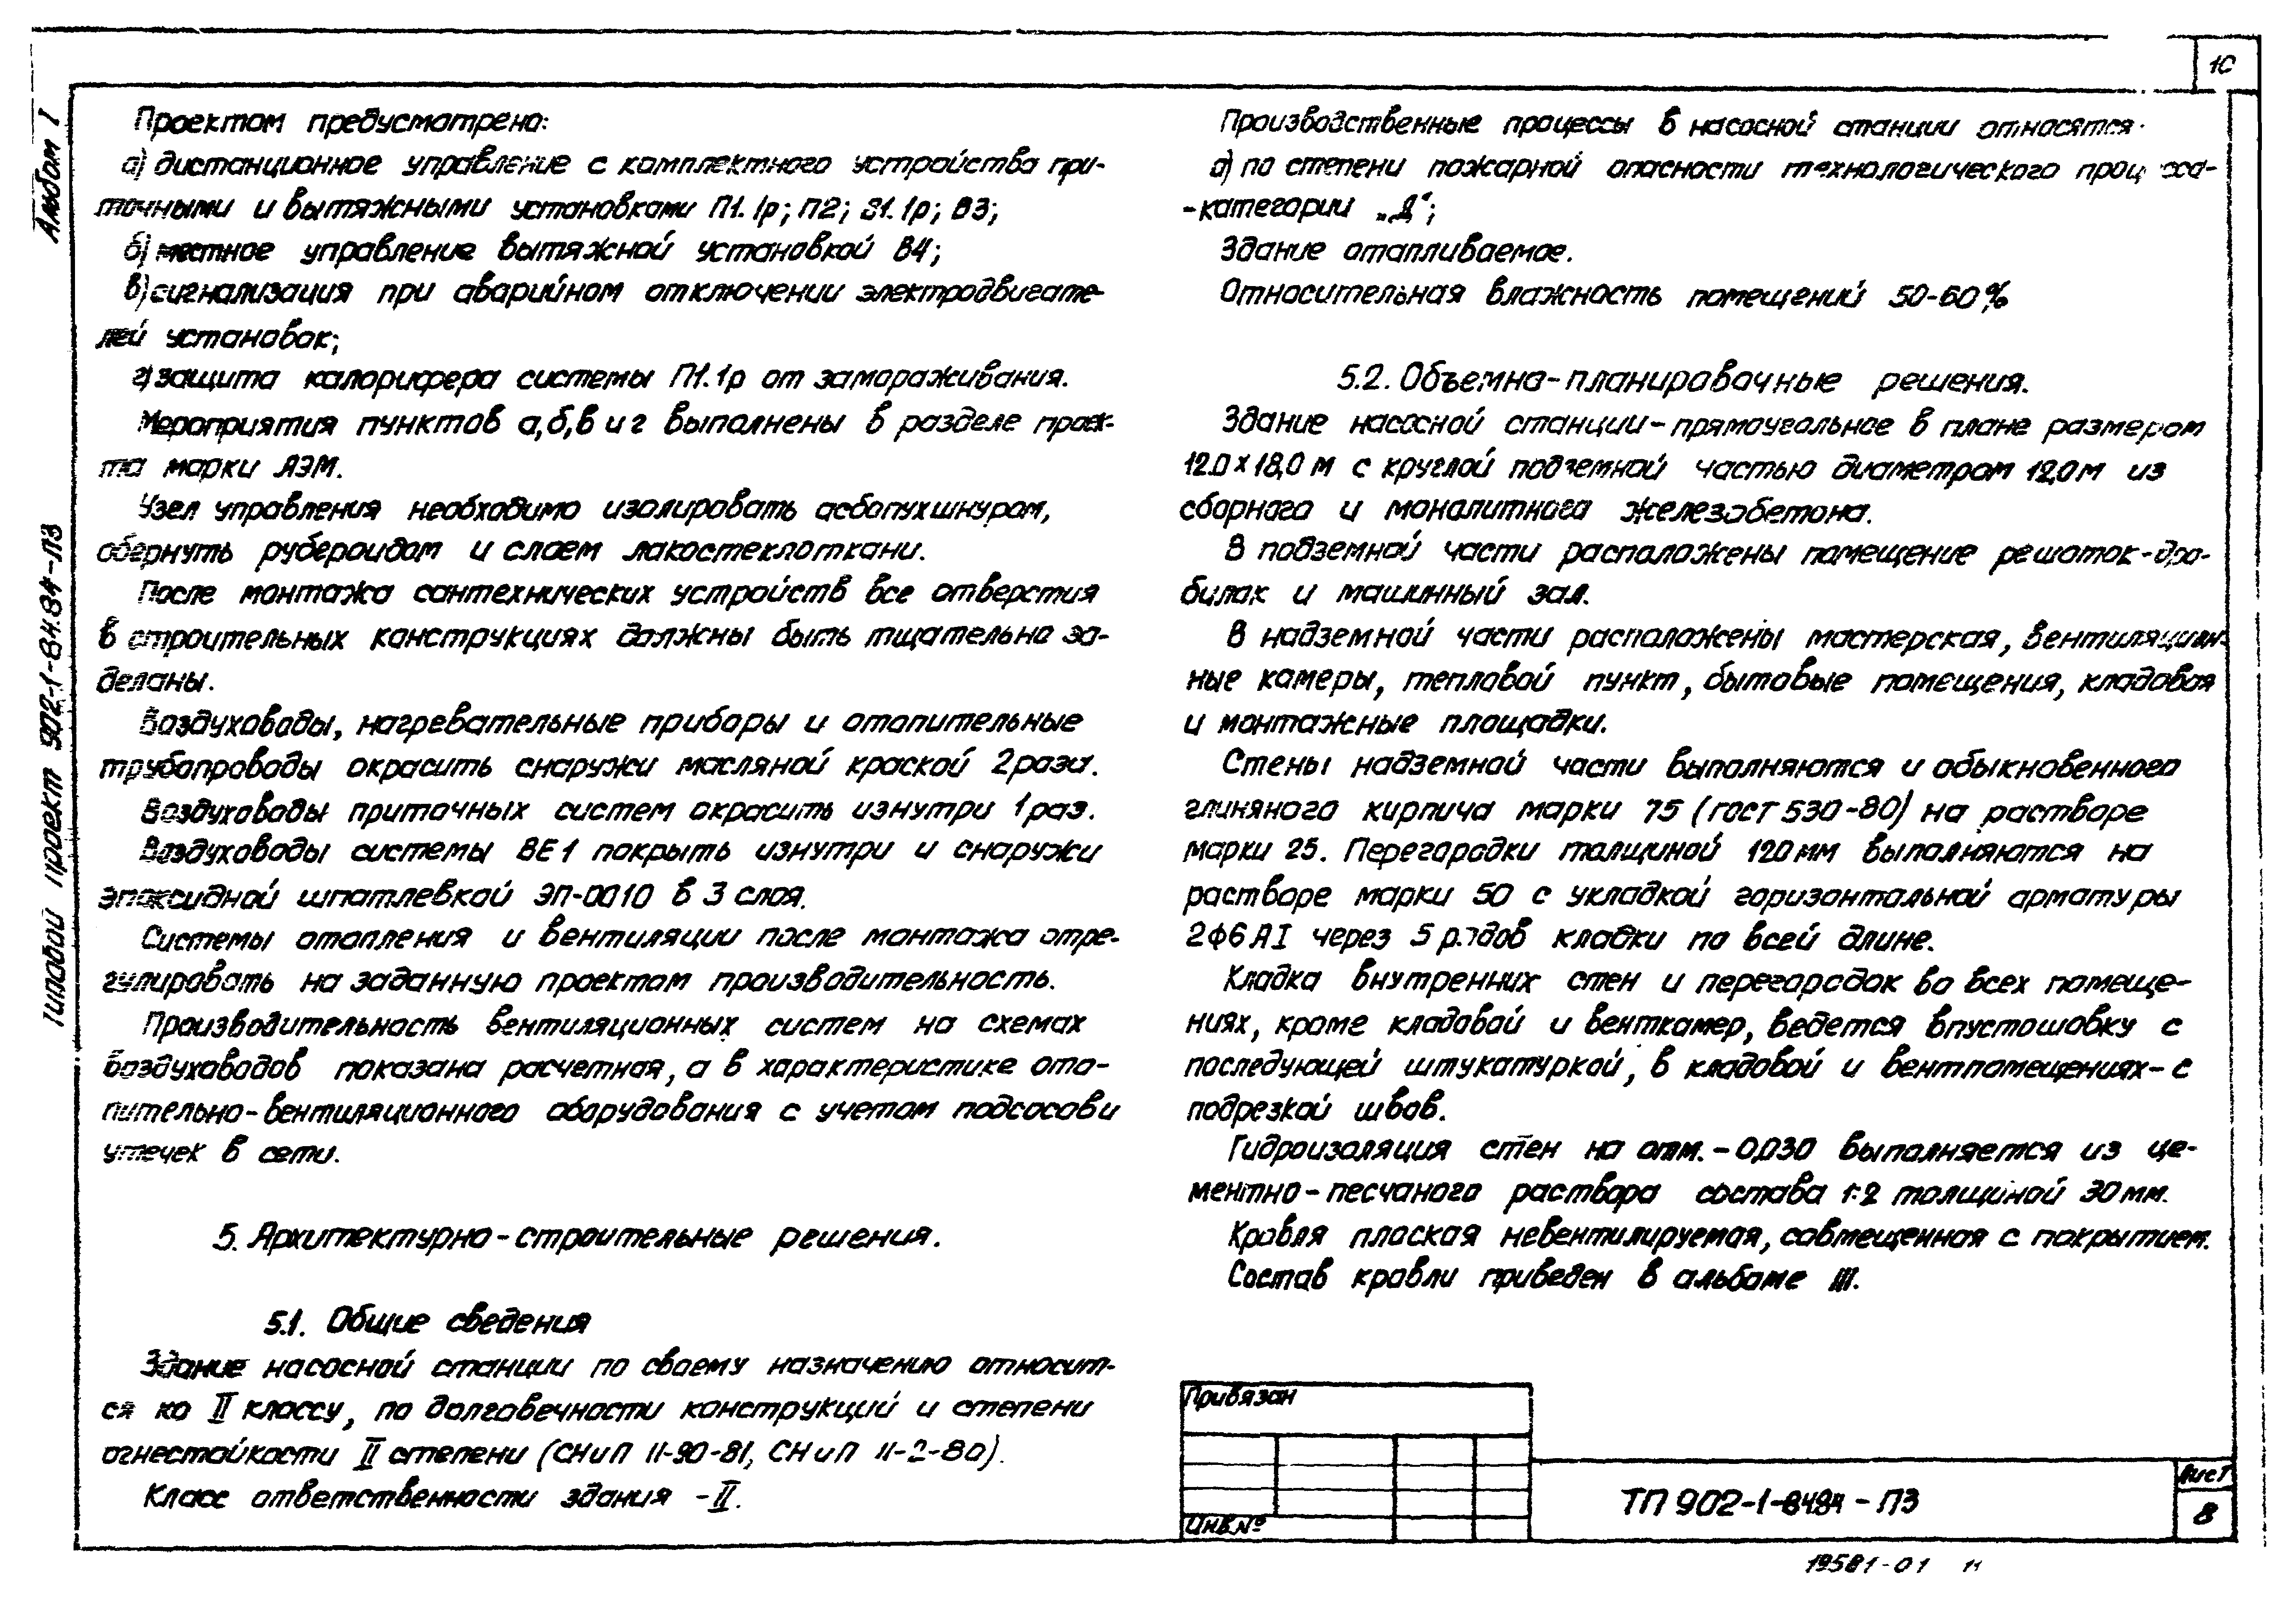 10
Альбом I
Типовой проект 902-1-84.84-ПЗ
Проектом предусмотрено:
а) дистанционное управление с комплектного устройства при-
точными и вытяжными установками П1.1р; П2; В1.1р; В3;
б) местное управление вытяжной установкой В4;
в) сигнализация при аварийном отключении электродвигате-
лей установок;
г) защита калорифера системы П1.1р от замораживания.
Мероприятия пунктов а,б,в и г выполнены в разделе проек-
та марки АЭМ.
Узел управления необходимо изолировать асбопухшнуром,
обернуть рубероидом и слоем лакостеклоткани.
После монтажа сантехнических устройств все отверстия
в строительных конструкциях должны быть тщательно за-
деланы.
Воздуховоды, нагревательные приборы и отопительные
трубопроводы окрасить снаружи масляной краской 2 раза.
Воздуховоды приточных систем окрасить изнутри 1 раз.
Воздуховоды системы ВЕ1 покрыть изнутри и снаружи
эпоксидной шпатлевкой ЭП-0010 в 3 слоя.
Системы отопления и вентиляции после монтажа отре-
гулировать на заданную проектом производительность.
Производительность вентиляционных систем на схемах
воздуховодов показана расчетная, а в характеристике ото-
пительно-вентиляционного оборудования с учетом подсосов и
утечек в сети.
5. Архитектурно-строительные решения.
5.1. Общие сведения
Здание насосной станции по своему назначению относит-
ся ко II классу, по долговечности конструкций и степени
огнестойкости II степени (СНиП II-90-81, СНиП II-2-80).
Класс ответственности здания - II.
Производственные процессы в насосной станции относятся:
а) по степени пожарной опасности технологического процесса-
-категории „Д“;
Здание отапливаемое.
Относительная влажность помещений 50-60%
5.2. Объемно-планировочные решения.
Здание насосной станции - прямоугольное в плане размером
12.0×18,0 м с круглой подземной частью диаметром 12,0 м из
сборного и монолитного железобетона.
В подземной части расположены помещение решоток-дро-
билок и машинный зал.
В надземной части расположены мастерская, вентиляцион-
ные камеры, тепловой пункт, бытовые помещения, кладовая
и монтажные площадки.
Стены надземной части выполняются и обыкновенного
глиняного кирпича марки 75 (ГОСТ 530-80) на растворе
марки 25. Перегородки толщиной 120 мм выполняются на
растворе марки 50 с укладкой горизонтальной арматуры
2ф6АI через 5 рядов кладки по всей длине.
Кладка внутренних стен и перегородок во всех помеще-
ниях, кроме кладовой и венткамер, ведется впустошовку с
последующей штукатуркой, в кладовой и вентпомещениях-с
подрезкой швов.
Гидроизоляция стен на отм. -0,030 выполняется из це-
ментно-песчаного раствора состава 1:2 толщиной 30 мм.
Кровля плоская невентилируемая, совмещенная с покрытием.
Состав кровли приведен в альбоме III.
Привязан
Инв.№
ТП 902-1-84.84-ПЗ
Лист
8
19581-01 11